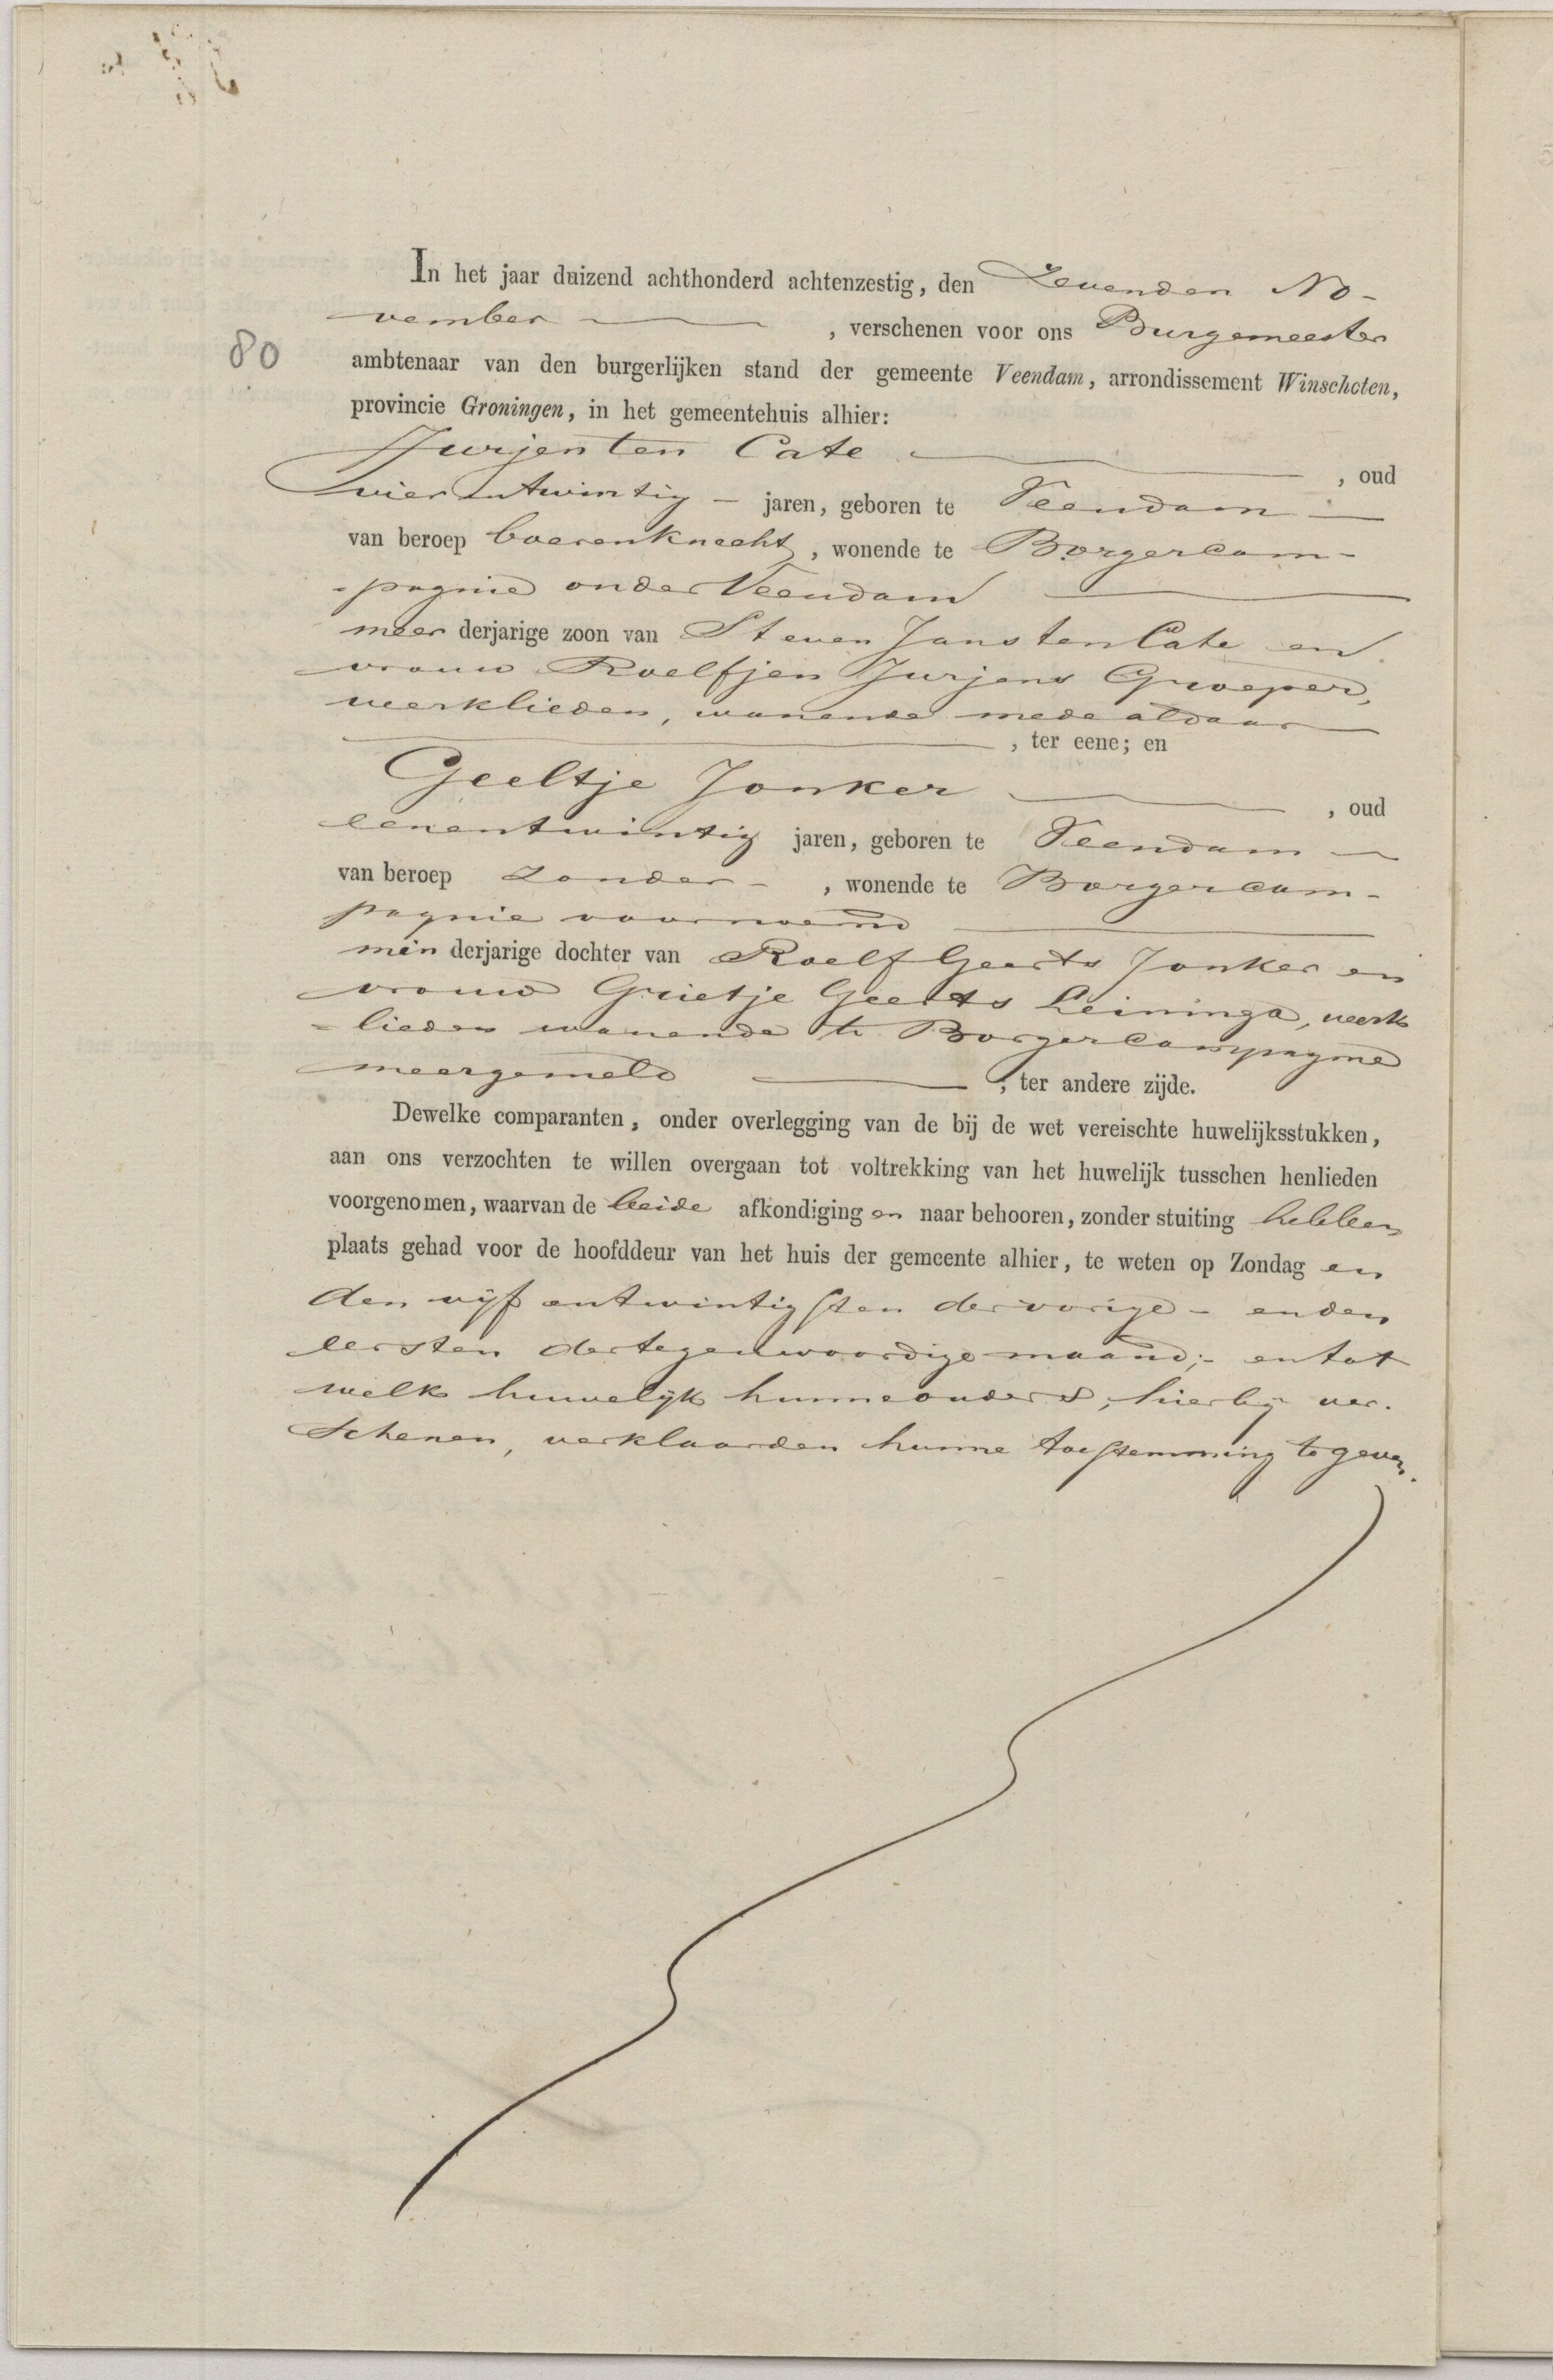 In het jaar duizend achthonderd achtenzestig, den Zevenden No-
vember , verschenen voor ons Burgemeester
80
ambtenaar van den burgerlijken stand der gemeente Veendam, arrondissement Winschoten,
provincie Groningen, in het gemeentehuis alhier:
Jurjen ten Cate , oud
vierentwintig - jaren, geboren te Veendam
van beroep boerenknecht, wonende te Borgercom-
-pagnie onder Veendam
meer derjarige zoon van Steven Jans ten Cate en
vrouw Roelfjen Jurjens Groeper,
werklieden, wonende mede aldaar
, ter eene; en
Geeltje Jonker , oud
eenentwintig jaren, geboren te Veendam
van beroep Zonder - , wonende te Borgercom-
pagnie voornoemd
min derjarige dochter van Roelf Geerts Jonker en
vrouw Grietje Geerts Leininga, werk
-lieden wonende te Borgercompagnie
meergemeld , ter andere zijde.
Dewelke comparanten, onder overlegging van de bij de wet vereischte huwelijksstukken,
aan ons verzochten te willen overgaan tot voltrekking van het huwelijk tusschen henlieden
voorgenomen, waarvan de beide afkondiging en naar behooren, zonder stuiting hebben
plaats gehad voor de hoofddeur van het huis der gemeente alhier, te weten op Zondag en
den vijf entwintigsten der vorige - en den
eersten der tegenwoordige maand; - en tot
welk huwelijk hunne ouders, hierbij ver-
schenen, verklaarden hunne toestemming te geven.